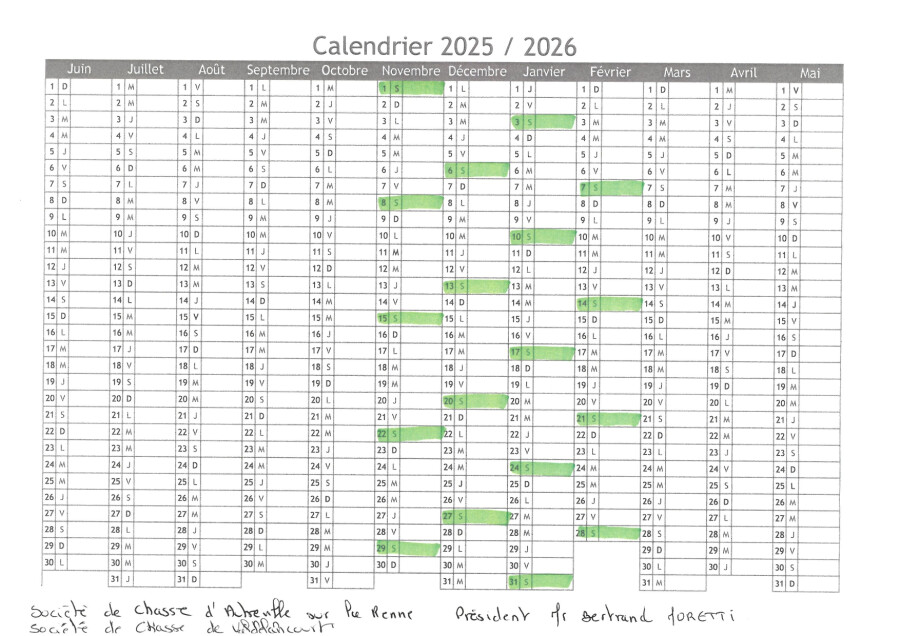 Calendrier 2025 / 2026
Juin Juillet Août Septembre Octobre Novembre Décembre Janvier Février Mars Avril Mai
1 D 1 M 1 V 1 L 1 M 1 S 1 L 1 J 1 D 1 D 1 M 1 V
2 L 2 M 2 S 2 M 2 J 2 D 2 M 2 V 2 L 2 L 2 J 2 S
3 M 3 J 3 D 3 M 3 V 3 L 3 M 3 S 3 M 3 M 3 V 3 D
4 M 4 V 4 L 4 J 4 S 4 M 4 J 4 D 4 M 4 M 4 S 4 L
5 J 5 S 5 M 5 V 5 D 5 M 5 V 5 L 5 J 5 J 5 D 5 M
6 V 6 D 6 M 6 S 6 L 6 J 6 S 6 M 6 V 6 V 6 L 6 M
7 S 7 L 7 J 7 D 7 M 7 V 7 D 7 M 7 S 7 S 7 M 7 J
8 D 8 M 8 V 8 L 8 M 8 S 8 L 8 J 8 D 8 D 8 M 8 V
9 L 9 M 9 S 9 M 9 J 9 D 9 M 9 V 9 L 9 L 9 J 9 S
10 M 10 J 10 D 10 M 10 V 10 L 10 M 10 S 10 M 10 M 10 V 10 D
11 M 11 V 11 L 11 J 11 S 11 M 11 J 11 D 11 M 11 M 11 S 11 L
12 J 12 S 12 M 12 V 12 D 12 M 12 V 12 L 12 J 12 J 12 D 12 M
13 V 13 D 13 M 13 S 13 L 13 J 13 S 13 M 13 V 13 V 13 L 13 M
14 S 14 L 14 J 14 D 14 M 14 V 14 D 14 M 14 S 14 S 14 M 14 J
15 D 15 M 15 V 15 L 15 M 15 S 15 L 15 J 15 D 15 D 15 M 15 V
16 L 16 M 16 S 16 M 16 J 16 D 16 M 16 V 16 L 16 L 16 J 16 S
17 M 17 J 17 D 17 M 17 V 17 L 17 M 17 S 17 M 17 M 17 V 17 D
18 M 18 V 18 L 18 J 18 S 18 M 18 J 18 D 18 M 18 M 18 S 18 L
19 J 19 S 19 M 19 V 19 D 19 M 19 V 19 L 19 J 19 J 19 D 19 M
20 V 20 D 20 M 20 S 20 L 20 J 20 S 20 M 20 V 20 V 20 L 20 M
21 S 21 L 21 J 21 D 21 M 21 V 21 D 21 M 21 S 21 S 21 M 21 J
22 D 22 M 22 V 22 L 22 M 22 S 22 L 22 J 22 D 22 D 22 M 22 V
23 L 23 M 23 S 23 M 23 J 23 D 23 M 23 V 23 L 23 L 23 J 23 S
24 M 24 J 24 D 24 M 24 V 24 L 24 M 24 S 24 M 24 M 24 V 24 D
25 M 25 V 25 L 25 J 25 S 25 M 25 J 25 D 25 M 25 M 25 S 25 L
26 J 26 S 26 M 26 V 26 D 26 M 26 V 26 L 26 J 26 J 26 D 26 M
27 V 27 D 27 M 27 S 27 L 27 J 27 S 27 M 27 V 27 V 27 L 27 M
28 S 28 L 28 J 28 D 28 M 28 V 28 D 28 M 28 S 28 S 28 M 28 J
29 D 29 M 29 V 29 L 29 M 29 S 29 L 29 J 29 D 29 M 29 V
30 L 30 M 30 S 30 M 30 J 30 D 30 M 30 V 30 L 30 J 30 S
31 J 31 D 31 V 31 M 31 S 31 M 31 D
Société de Chasse d'Autreville sur La Renne Président Mr Bertrand MORETTI
Société de Chasse de